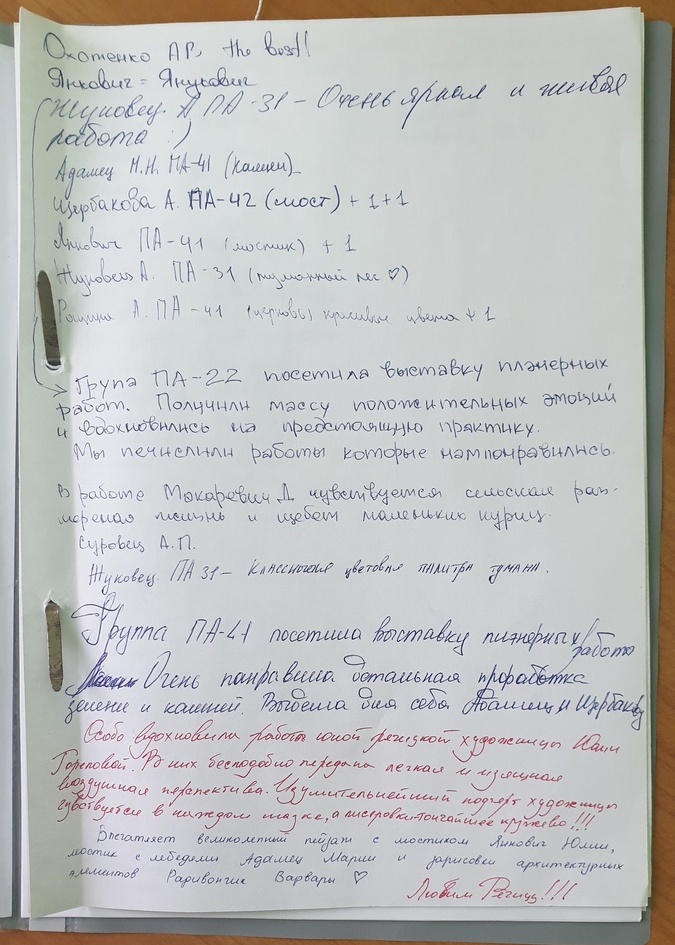 Охотенко А.Р. the best!!
Янкович = Янукович
Жуковец А ПА-31 - Очень яркая и живая
работа :)
Адамец М.Н. ПА-41 (камни)
Щербакова А. ПА-42 (мост) + 1 + 1
Янкович ПА-41 (мостик) + 1
Жуковец А. ПА-31 (туманный лес ♡)
А. ПА-41 (церковь) красивые цвета + 1
Група ПА-22 посетила выставку плэнерных
работ. Получили массу положительных эмоций
и вдохновились на предстоящую практику.
Мы печислили работы которые нам понравились.
В работе Макаревич Д. чувствуется сельская раз-
мереная жизнь и щебет маленьких куриц.
Суровец А.П.
Жуковец ПА 31 - Классная цветовая палитра тумана.
Группа ПА-41 посетила выставку пленэрных
работ
Очень понравилась детальная проработка
зелени и камней. Выдела для себя Адамец и Щербакову
Особо вдохновили работы юной речицкой художницы Юлии
Гореловой. В них бесподобно передана легкая и изящная
воздушная перспектива. Изумительнейший подчерк художницы
чувствуется в каждом мазке, а лисеровки тончайшее кружево!!!
Впечатляет великолепный пейзаж с мостиком Янкович Юлии,
мостик с лебедями Адамец Марии и зарисовки архитектурных
элементов Радивончик Варвары ♡
Любим Речицу!!!